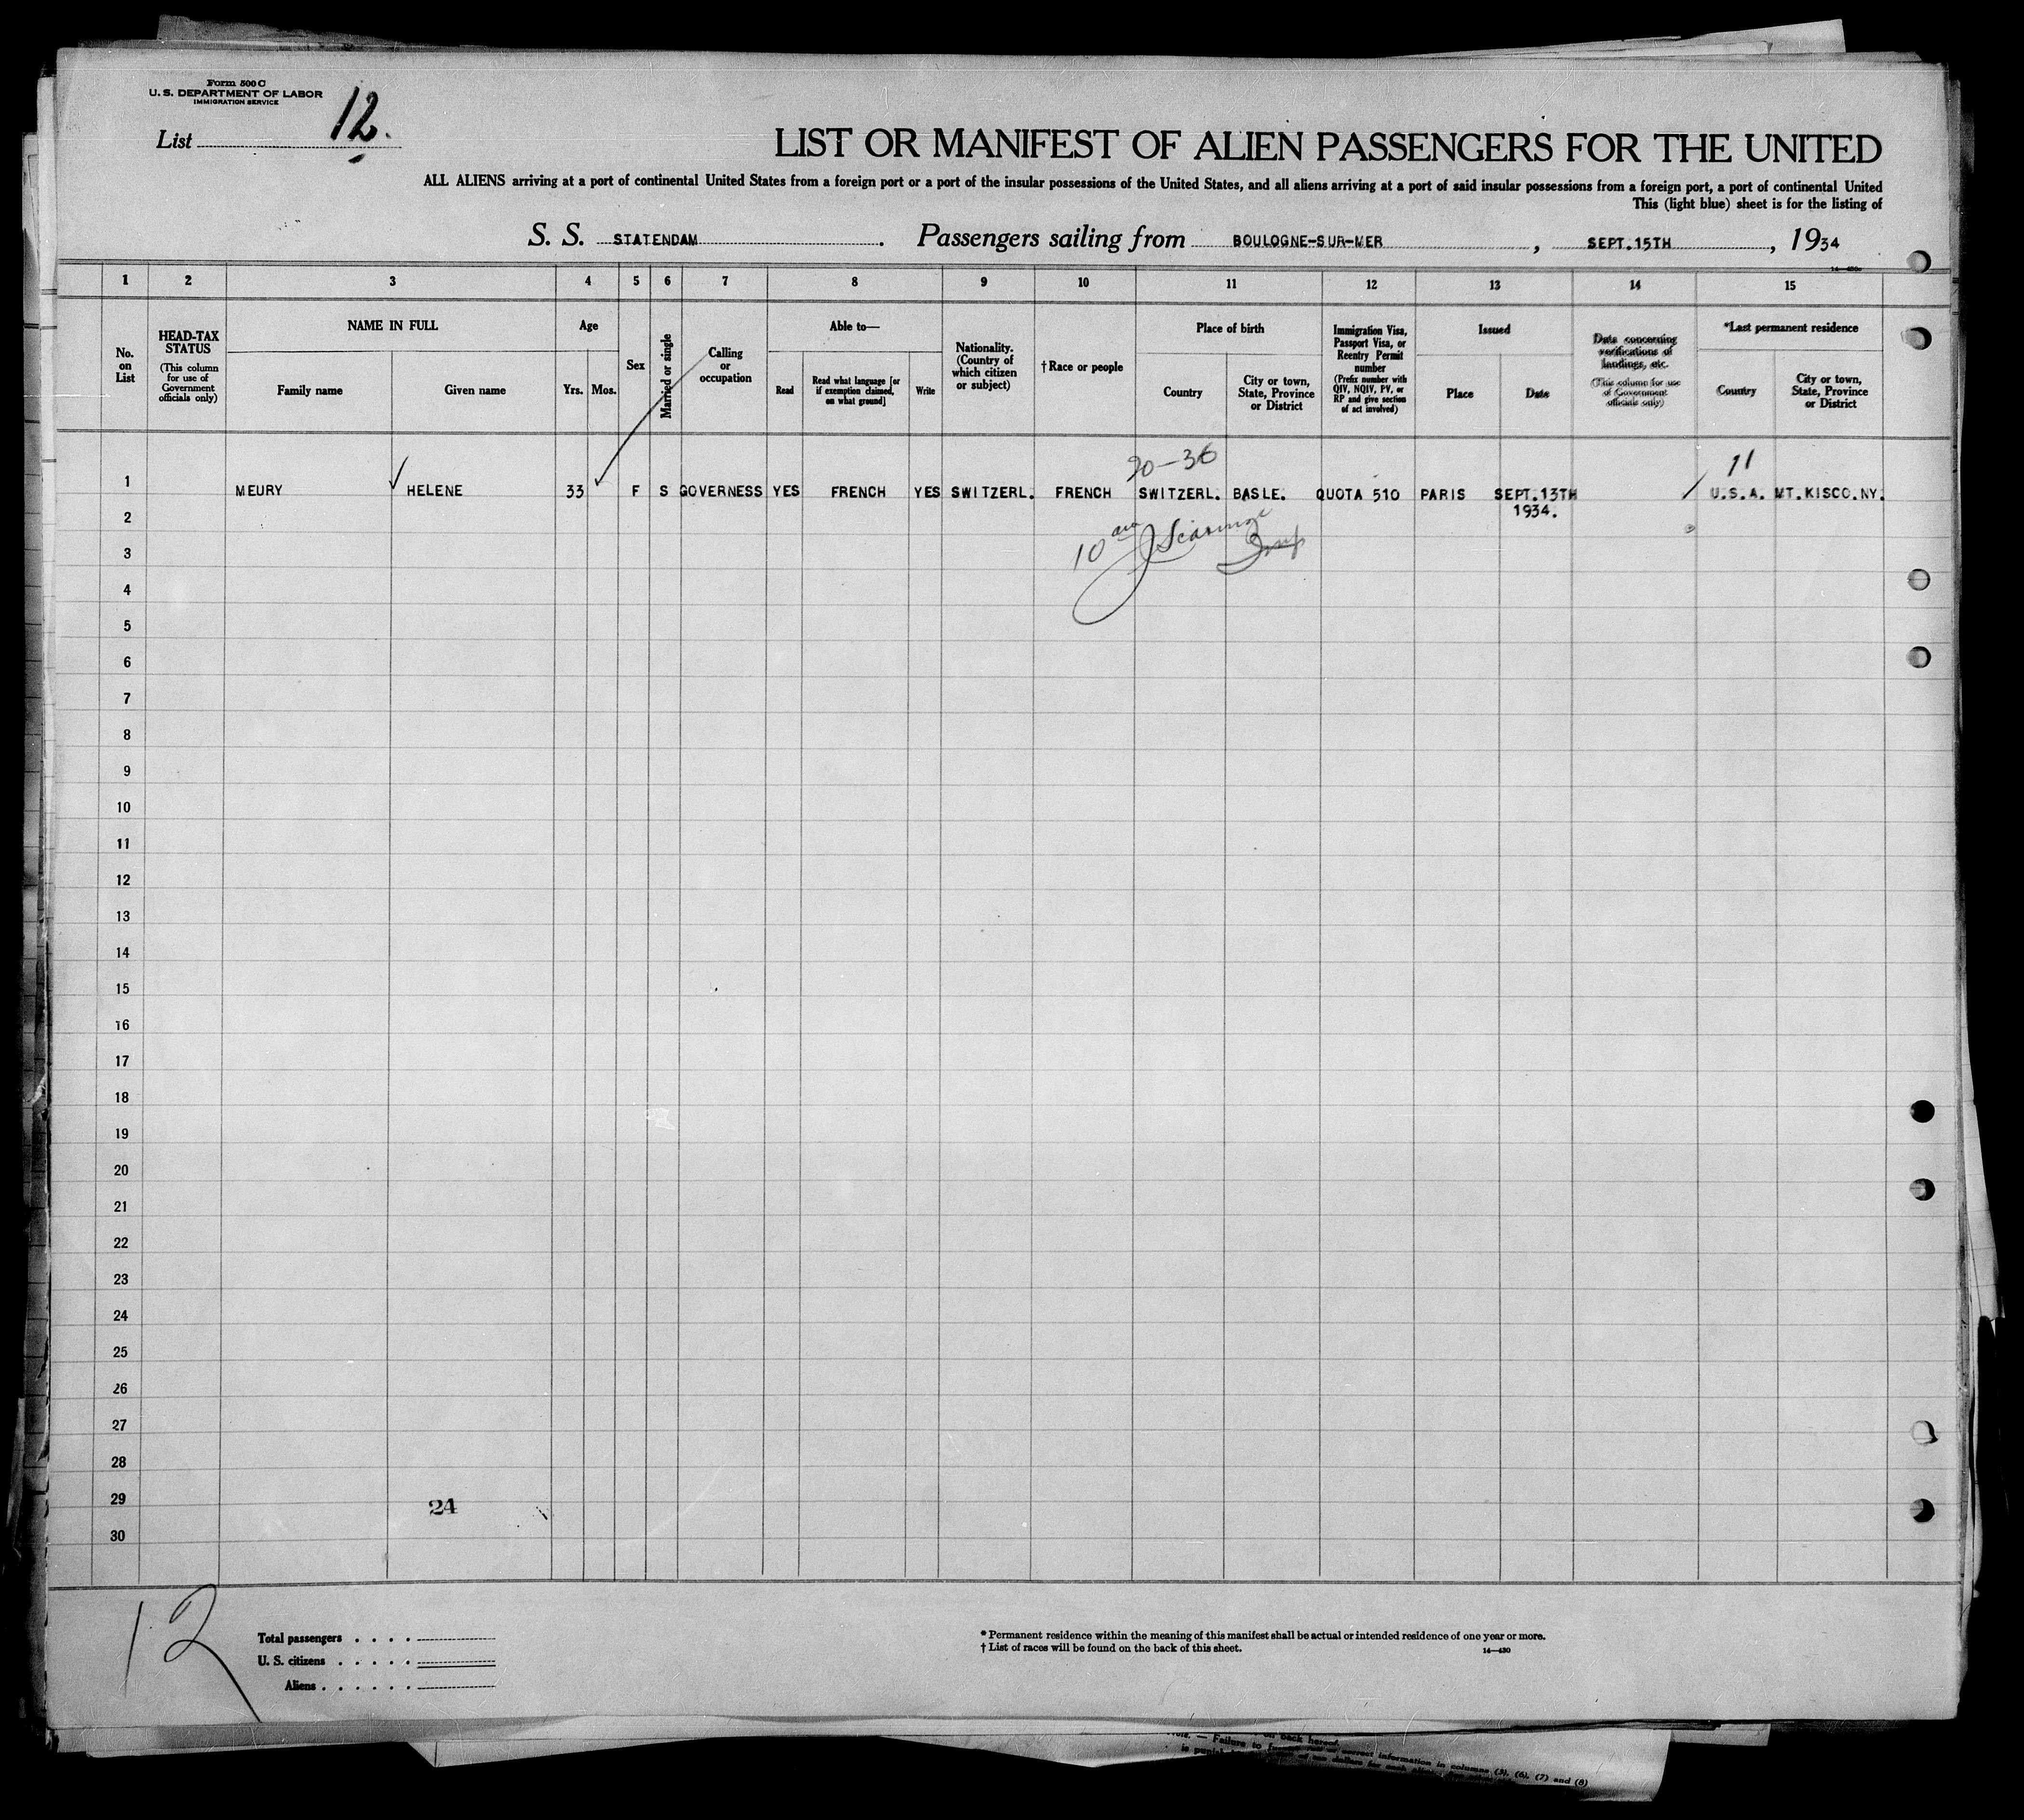 Form 500 C
U. S. DEPARTMENT OF LABOR
IMMIGRATION SERVICE
List 12.
LIST OR MANIFEST OF ALIEN PASSENGERS FOR THE UNITED
ALL ALIENS arriving at a port of continental United States from a foreign port or a port of the insular possessions of the United States, and all aliens arriving at a port of said insular possessions from a foreign port, a port of continental United
This (light blue) sheet is for the listing of
S. S. STATENDAM. Passengers sailing from BOULOGNE-SUR-MER, SEPT.15TH, 1934
1 2 3 4 5 6 7 8 9 10 11 12 13 14 15
No. on List
HEAD-TAX STATUS
(This column for use of Government officials only)
NAME IN FULL
Family name
Given name
Age
Yrs.
Mos.
Sex
Married or single
Calling or occupation
Able to—
Read
Read what language [or if exemption claimed, on what ground]
Write
Nationality. (Country of which citizen or subject)
†Race or people
Place of birth
Country
City or town, State, Province or District
Immigration Visa, Passport Visa, or Reentry Permit number
(Prefix number with QIV, NQIV, PV, or RP and give section of act involved)
Issued
Place
Date
Data concerning verifications of landings, etc.
(This column for use of Government officials only)
*Last permanent residence
Country
City or town, State, Province or District
20-36
11
1 MEURY HELENE 33 F S GOVERNESS YES FRENCH YES SWITZERL. FRENCH SWITZERL. BASLE. QUOTA 510 PARIS SEPT.13TH 1934. U.S.A. MT.KISCO.NY.
10 am
2
3
4
5
6
7
8
9
10
11
12
13
14
15
16
17
18
19
20
21
22
23
24
25
26
27
28
29
24
30
12
Total passengers . . . .
U. S. citizens . . . . .
Aliens . . . . . .
* Permanent residence within the meaning of this manifest shall be actual or intended residence of one year or more.
† List of races will be found on the back of this sheet.
14—430
back hereof.
— Failure to
correct information in columns (3), (6), (7) and (8)